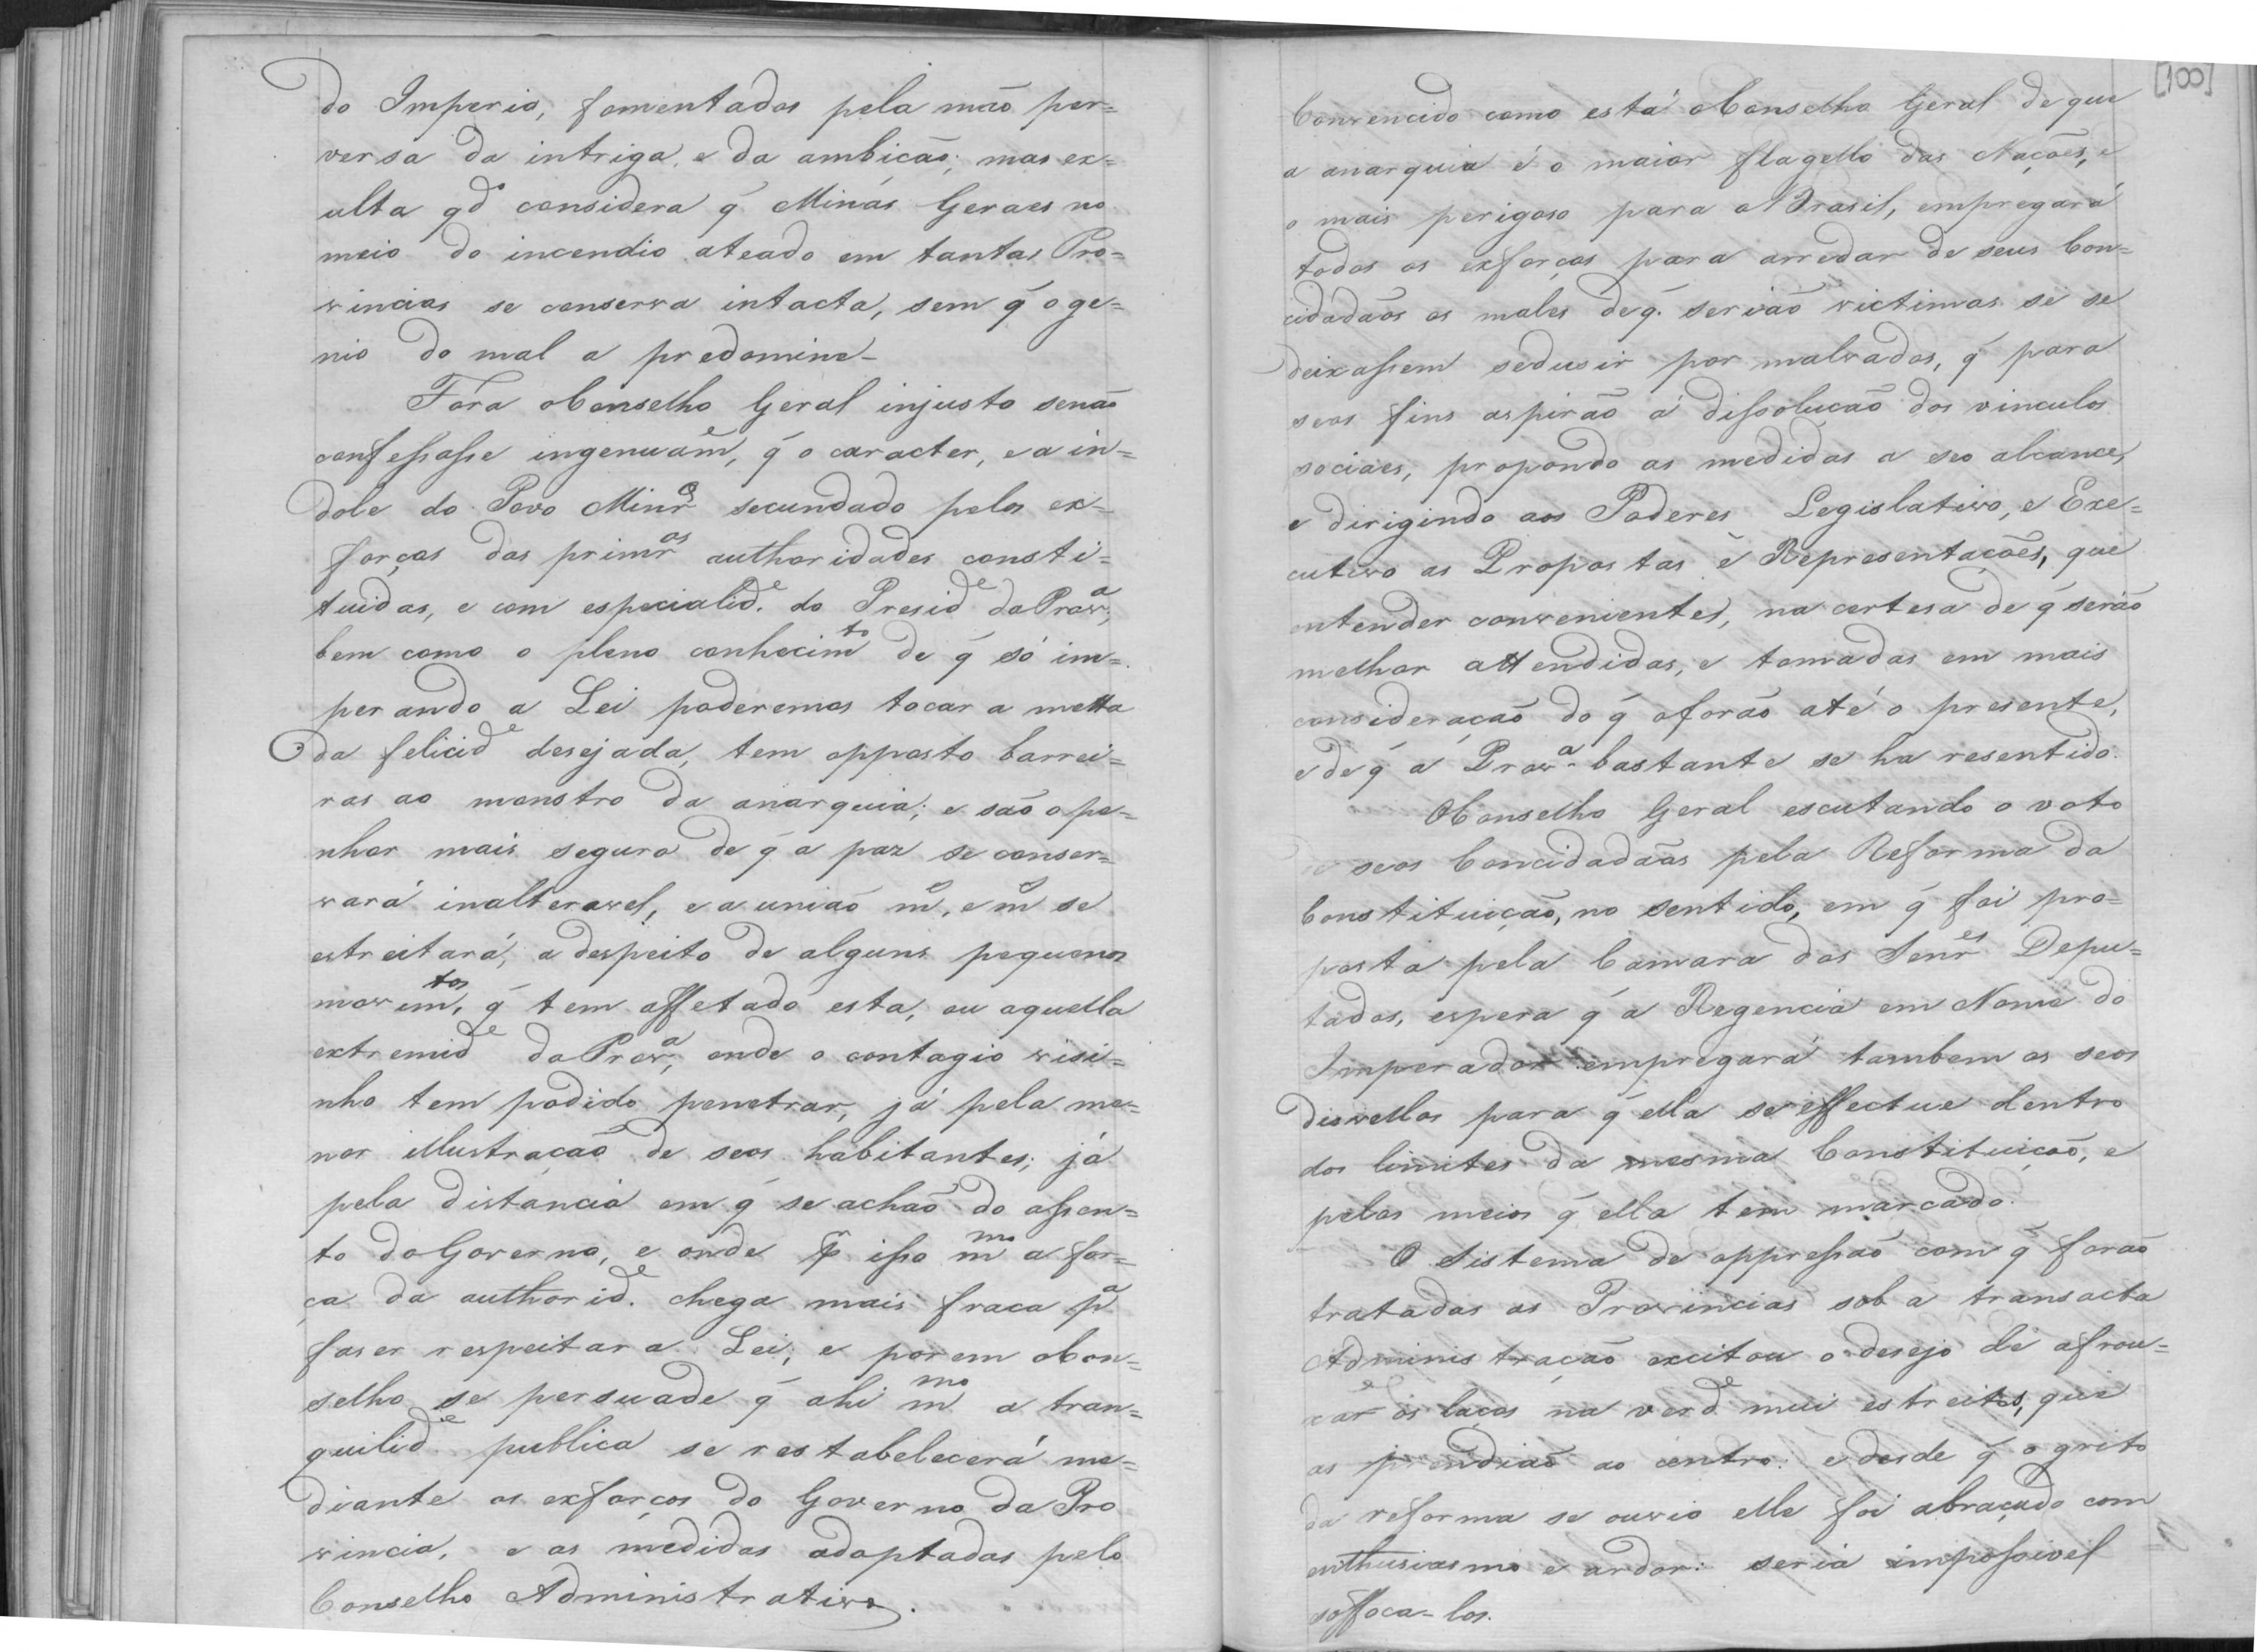 do Imperio, fomentados pela mão per=
versa da intriga, e da ambição; mas ex=
ulta qdo considera q̃ Minas Geraes no
meio do incendio ateado em tantas Pro=
vincias se conserva intacta, sem q̃ o ge=
nio do mal a predomine-
Fora o Conselho Geral injusto senão
confessasse ingenuame, q̃ o caracter, e a in=
dole do Povo Minro secundado pelos ex=
forços das primras authoridades consti=
tuidas, e com especialide. do Preside da Prova,
bem como o pleno conhecimto de q̃ só im=
perando a Lei poderemos tocar a metta
da felicide desejada, tem opposto barrei=
ras ao monstro da anarquia; e são o pe=
nhor mais seguro de q̃ a paz se conser=
vará inalteravel, e a união m̃, e m̃ se
estreitará, a despeito de alguns pequenos
movimtos, q̃ tem affetado esta, ou aquella
extremide da Prova, onde o contagio visi=
nho tem podido penetrar, já pela me=
nor illustração de seos habitantes; já
pela distancia em q̃ se achão do assen=
to do Governo, e onde p̃ isso mmo a for=
ça da authoride. chega mais fraca pa
faser respeitar a Lei; e porem o Con=
selho se persuade q̃ ahi mmo a tran=
quilide publica se restabelecerá me=
diante os exforços do Governo da Pro
vincia, e as medidas adoptadas pelo
Conselho Administrativo.
[100]
Convencido como está o Conselho Geral de que
a anarquia é o maior flagello das Nações, e
o mais perigoso para o Brasil, empregará
todos os exforços para arredar de seus Con=
cidadãos os males de q̃. serião victimas se se
deixassem sedusir por malvados, q̃ para
seos fins aspirão á dissolução dos vinculos
sociaes, propondo as medidas a seo alcance,
e dirigindo aos Poderes Legislativo, e Exe=
cutivo as Propostas e Representações, que
entender convenientes, na certesa de q̃ serão
melhor attendidas, e tomadas em mais
consideração do q̃ o forão até o presente,
e de q̃ a Prova. bastante se ha resentido.
O Conselho Geral escutando o voto
de seos Concidadãos pela Reforma da
Constituição, no sentido, em q̃ foi pro=
posta pela Camara dos Senres Depu=
tados, espera q̃ a Regencia em Nome do
Imperador empregará tambem os seos
disvellos para q̃ ella se effectue dentro
dos limites da mesma Constituição, e
pelos meios q̃ ella tem marcado.
O Sistema de oppressão com q̃ forão
tratadas as Provincias sob a transacta
Administração excitou o desejo de afrou=
xar os laços na verde mui estreitos, que
as prendião ao centro: e desde q̃ o grito
da reforma se ouvio elle foi abraçado com
enthusiasmo e ardor: seria impossivel
soffoca-los.